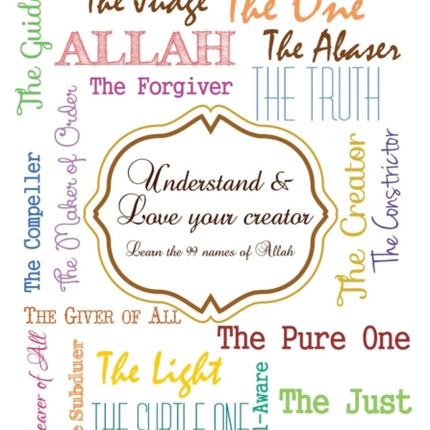 The Guid
The Judge
The One
ALLAH
The Abaser
The Forgiver
THE TRUTH
The Compeller
The Maker of Order
Understand &
Love your creator
Learn the 99 names of Allah
The Creator
The Constrictor
THE GIVER OF ALL
The Pure One
earer of All
e Subduer
The Light
THE SUBTLE ONE
l-Aware
The Just